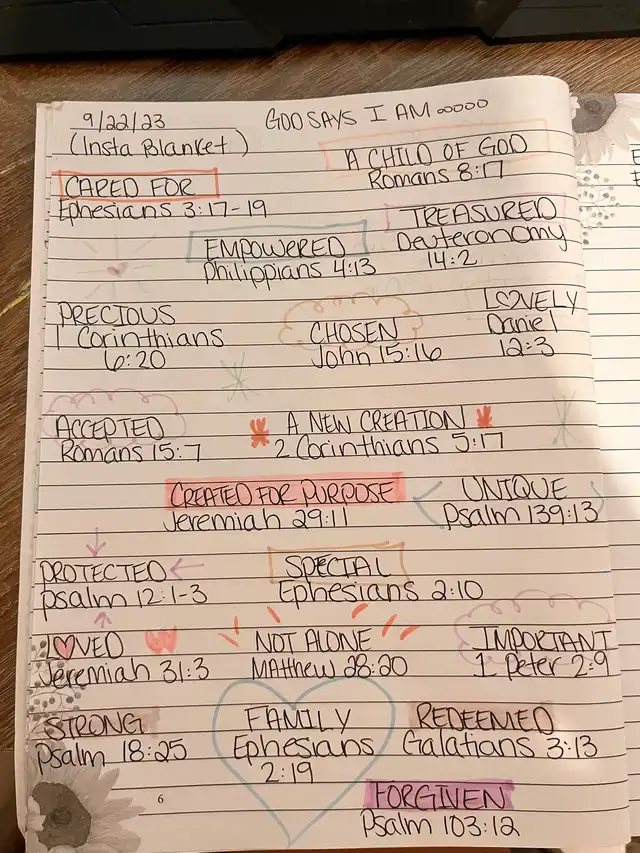 9/22/23
GOD SAYS I AM ooooo
(Insta Blanket)
A CHILD OF GOD
Romans 8:17
CARED FOR
Ephesians 3:17-19
TREASURED
Deuteronomy
14:2
EMPOWERED
Philippians 4:13
PRECIOUS
1 Corinthians
6:20
CHOSEN
John 15:16
LOVELY
Daniel
12:3
ACCEPTED
Romans 15:7
A NEW CREATION
2 Corinthians 5:17
CREATED FOR PURPOSE
Jeremiah 29:11
UNIQUE
Psalm 139:13
PROTECTED
Psalm 12:1-3
SPECIAL
Ephesians 2:10
LOVED
Jeremiah 31:3
NOT ALONE
Matthew 28:20
IMPORTANT
1 Peter 2:9
STRONG
Psalm 18:25
FAMILY
Ephesians
2:19
REDEEMED
Galatians 3:13
FORGIVEN
Psalm 103:12
6